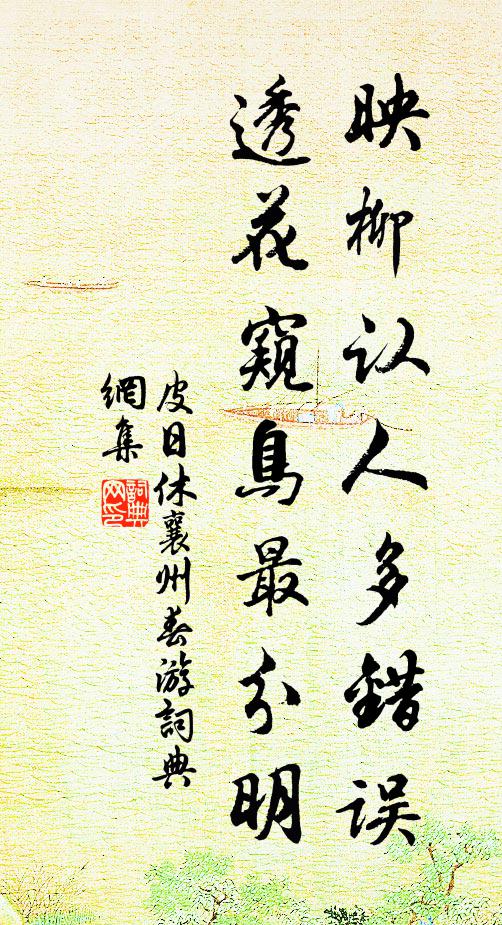 映柳认人多错误
透花窥鳥最分明
皮日休襄州春游詞典
網集
詞典
网印